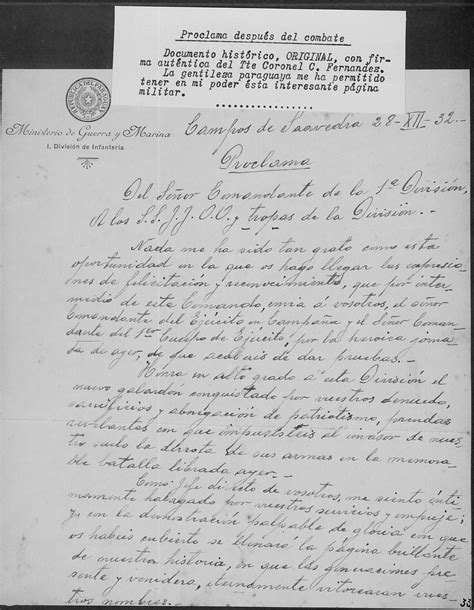 Proclama después del combate
Documento histórico, ORIGINAL, con fir-
ma auténtica del Tte Coronel C. Fernandez.
La gentileza paraguaya me ha permitido
tener en mi poder ésta interesante página
militar.
REPUBLICA DEL PARAGUAY
Ministerio de Guerra y Marina
I. División de Infantería
Campos de Saavedra 28-XII-32.-
Proclama
Del Señor Comandante de la 1ª División,
A los S.S. J.J. O.O. y tropas de la División.-
Nada me ha sido tan grato como esta
oportunidad en la que os hago llegar las expresio-
nes de felicitación y reconocimiento, que por inter-
medio de este Comando, envia á vosotros, el señor
Comandante del Ejército en Campaña y el Señor Coman-
dante del 1er Cuerpo de Ejército, por la heroica jorna-
da de ayer, de que acabais de dar pruebas.-
Honra en alto grado á esta División el
nuevo galardón conquistado por vuestros denuedo,
sacrificios y abnegación de patriotismo, prendas
con que impusisteis el invasor de nues-
tro suelo la derrota de sus armas en la memora-
ble batalla librada ayer.-
Como Jefe directo de vosotros, me siento ínti-
mamente halagado por vuestros servicios y empuje;
y en la demostración palpable de gloria con que
os habeis cubierto se llenará la página brillante
de nuestra historia, en que las generaciones pre-
sente y venidera, eternamente vitorearan vues-
tros nombres.-